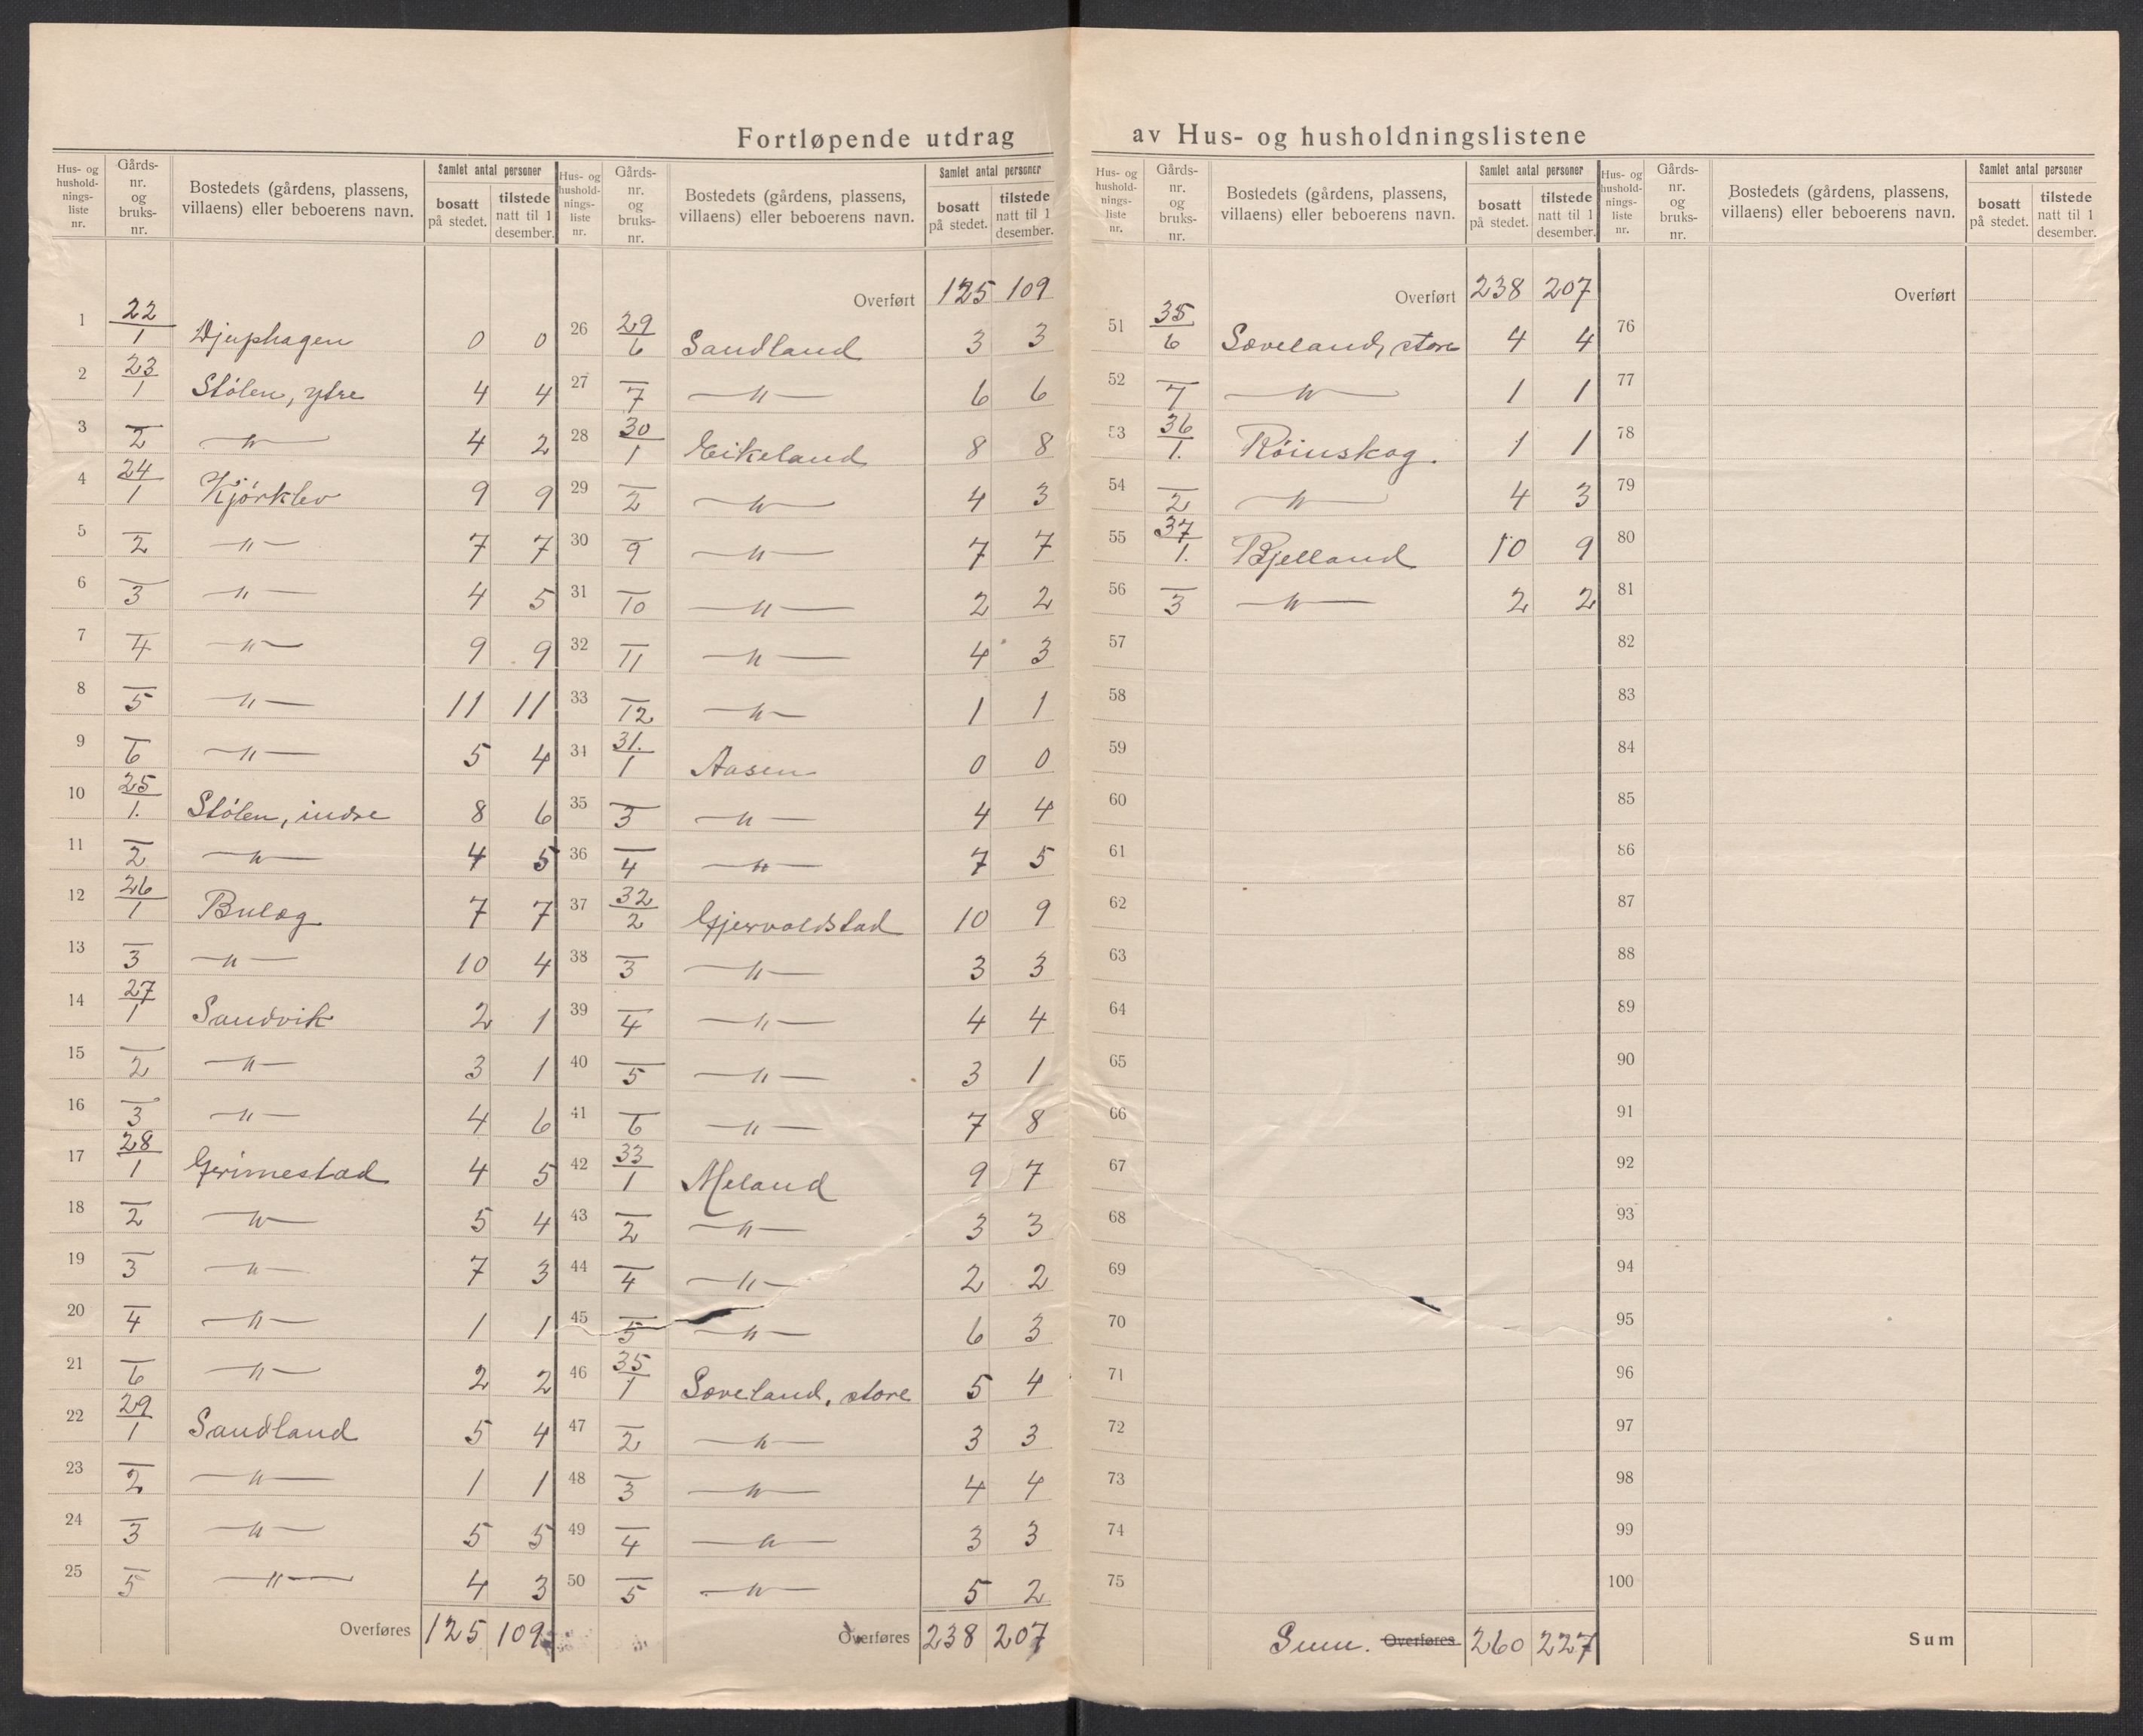 Fortløpende utdrag av Hus- og husholdningslistene
Hus- og hushold-nings-liste nr. | Gårds-nr. og bruks-nr. | Bostedets (gårdens, plassens, villaens) eller beboerens navn. | Samlet antal personer | bosatt på stedet. | tilstede natt til 1 desember.
1 22/1 Djuphagen 0 0
2 23/1 Stölen, ytre 4 4
3 /2 —"— 4 2
4 24/1 Kjörklev 9 9
5 /2 —"— 7 7
6 /3 —"— 4 5
7 /4 —"— 9 9
8 /5 —"— 11 11
9 /6 —"— 5 4
10 25/1. Stölen, indre 8 6
11 /2 —"— 4 5
12 26/1 Buleg 7 7
13 /3 —"— 10 4
14 27/1 Sandvik 2 1
15 /2 —"— 3 1
16 /3 —"— 4 6
17 28/1 Grimestad 4 5
18 /2 —"— 5 4
19 /3 —"— 7 3
20 /4 —"— 1 1
21 /6 —"— 2 2
22 29/1 Sandland 5 4
23 /2 —"— 1 1
24 /3 —"— 5 5
25 /5 —"— 4 3
Overføres 125 109
Hus- og hushold-nings-liste nr. | Gårds-nr. og bruks-nr. | Bostedets (gårdens, plassens, villaens) eller beboerens navn. | Samlet antal personer | bosatt på stedet. | tilstede natt til 1 desember.
Overført 125 109
26 29/6 Sandland 3 3
27 /7 —"— 6 6
28 30/1 Eikeland 8 8
29 /2 —"— 4 3
30 /9 —"— 7 7
31 /10 —"— 2 2
32 /11 —"— 4 3
33 /12 —"— 1 1
34 31./1 Aasen 0 0
35 /3 —"— 4 4
36 /4 —"— 7 5
37 32/2 Gjervoldstad 10 9
38 /3 —"— 3 3
39 /4 —"— 4 4
40 /5 —"— 3 1
41 /6 —"— 7 8
42 33/1 Meland 9 7
43 /2 —"— 3 3
44 /4 —"— 2 2
45 /5 —"— 6 3
46 35/1 Soveland, store 5 4
47 /2 —"— 3 3
48 /3 —"— 4 4
49 /4 —"— 3 3
50 /5 —"— 5 2
Overføres 238 207
Hus- og hushold-nings-liste nr. | Gårds-nr. og bruks-nr. | Bostedets (gårdens, plassens, villaens) eller beboerens navn. | Samlet antal personer | bosatt på stedet. | tilstede natt til 1 desember.
Overført 238 207
51 35/6 Soveland, store 4 4
52 /7 —"— 1 1
53 36/1. Röinskog. 1 1
54 /2 —"— 4 3
55 37/1. Bjelland 10 9
56 /3 —"— 2 2
57
58
59
60
61
62
63
64
65
66
67
68
69
70
71
72
73
74
75
Sum. Overføres 260 227
Hus- og hushold-nings-liste nr. | Gårds-nr. og bruks-nr. | Bostedets (gårdens, plassens, villaens) eller beboerens navn. | Samlet antal personer | bosatt på stedet. | tilstede natt til 1 desember.
Overført
76
77
78
79
80
81
82
83
84
85
86
87
88
89
90
91
92
93
94
95
96
97
98
99
100
Sum